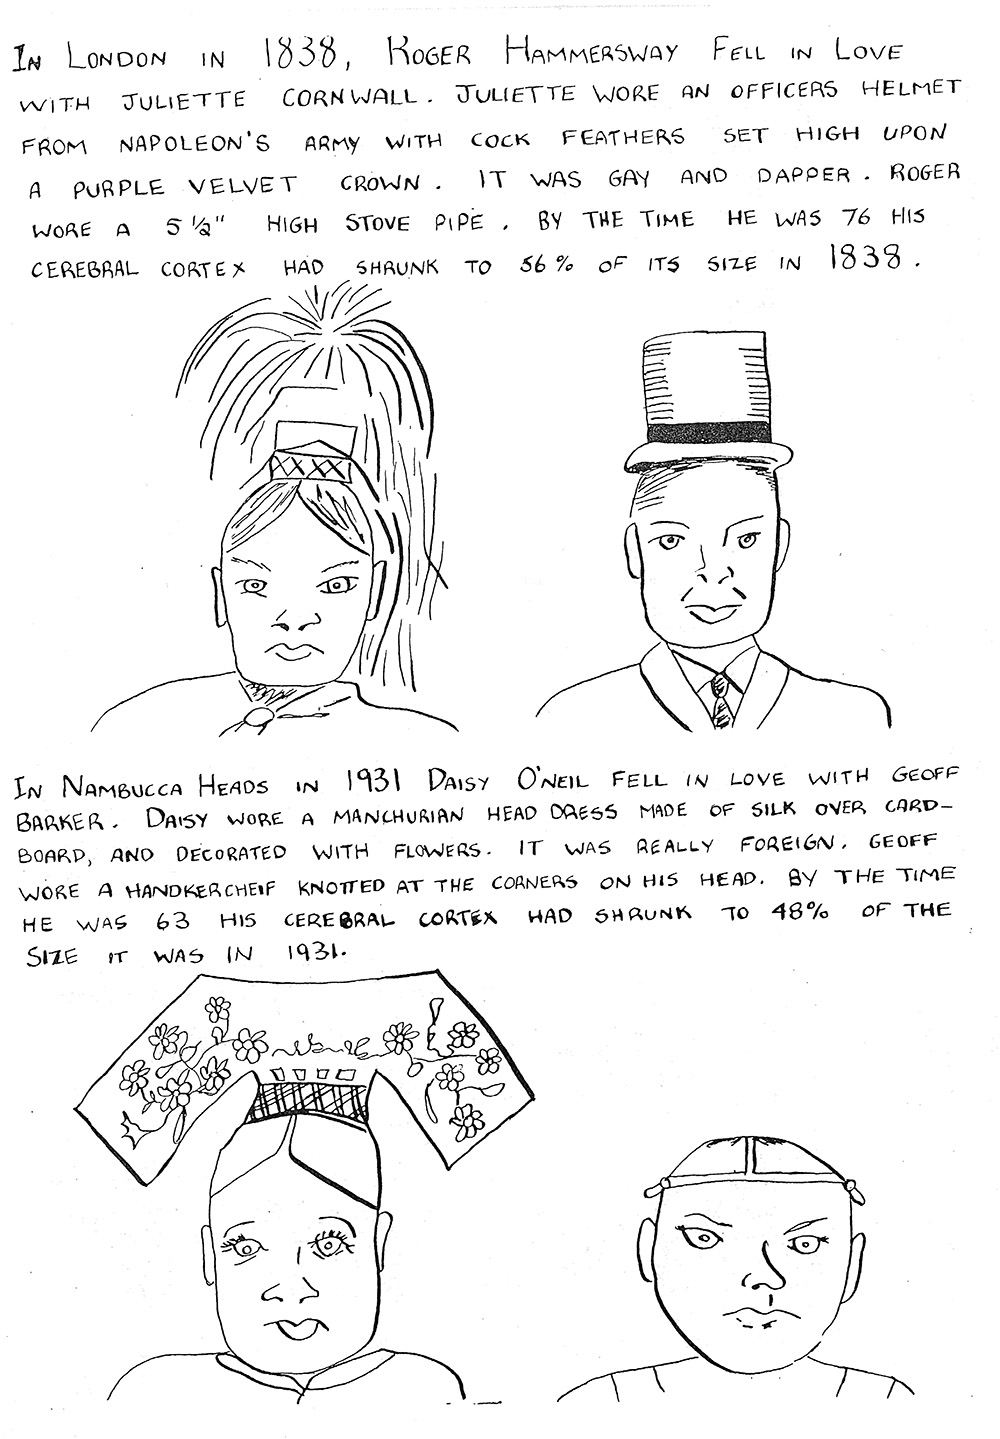 IN LONDON IN 1838, ROGER HAMMERSWAY FELL IN LOVE
WITH JULIETTE CORNWALL. JULIETTE WORE AN OFFICERS HELMET
FROM NAPOLEON'S ARMY WITH COCK FEATHERS SET HIGH UPON
A PURPLE VELVET CROWN. IT WAS GAY AND DAPPER. ROGER
WORE A 5 1/2" HIGH STOVE PIPE. BY THE TIME HE WAS 76 HIS
CEREBRAL CORTEX HAD SHRUNK TO 56% OF ITS SIZE IN 1838.
IN NAMBUCCA HEADS IN 1931 DAISY O'NEIL FELL IN LOVE WITH GEOFF
BARKER. DAISY WORE A MANCHURIAN HEAD DRESS MADE OF SILK OVER CARD-
BOARD, AND DECORATED WITH FLOWERS. IT WAS REALLY FOREIGN. GEOFF
WORE A HANDKERCHEIF KNOTTED AT THE CORNERS ON HIS HEAD. BY THE TIME
HE WAS 63 HIS CEREBRAL CORTEX HAD SHRUNK TO 48% OF THE
SIZE IT WAS IN 1931.